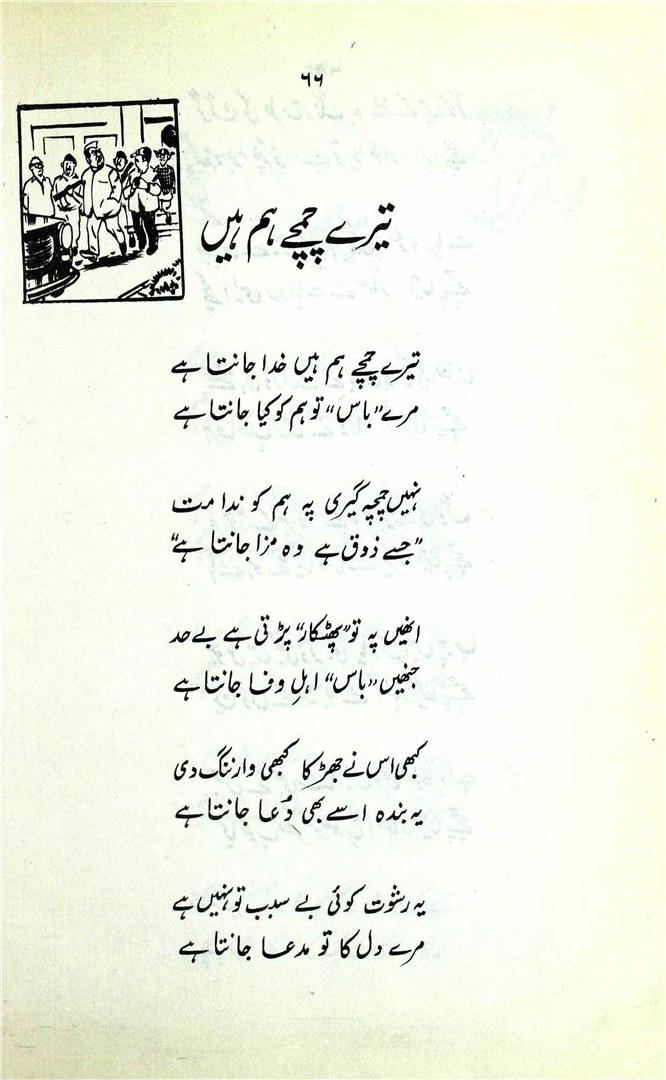 ۶۶
تیرے چمچے ہم ہیں
تیرے چمچے ہم ہیں خدا جانتا ہے
مرے "باس" تو ہم کو کیا جانتا ہے
نہیں چمچہ گیری پہ ہم کو ندامت
"جسے ذوق ہے وہ مزا جانتا ہے"
انھیں پہ تو "پھٹکار" پڑتی ہے بے حد
جنھیں "باس" اہلِ وفا جانتا ہے
کبھی اس نے جھڑکا کبھی وارننگ دی
یہ بندہ اسے بھی دُعا جانتا ہے
یہ رشوت کوئی بے سبب تو نہیں ہے
مرے دل کا تو مدعا جانتا ہے